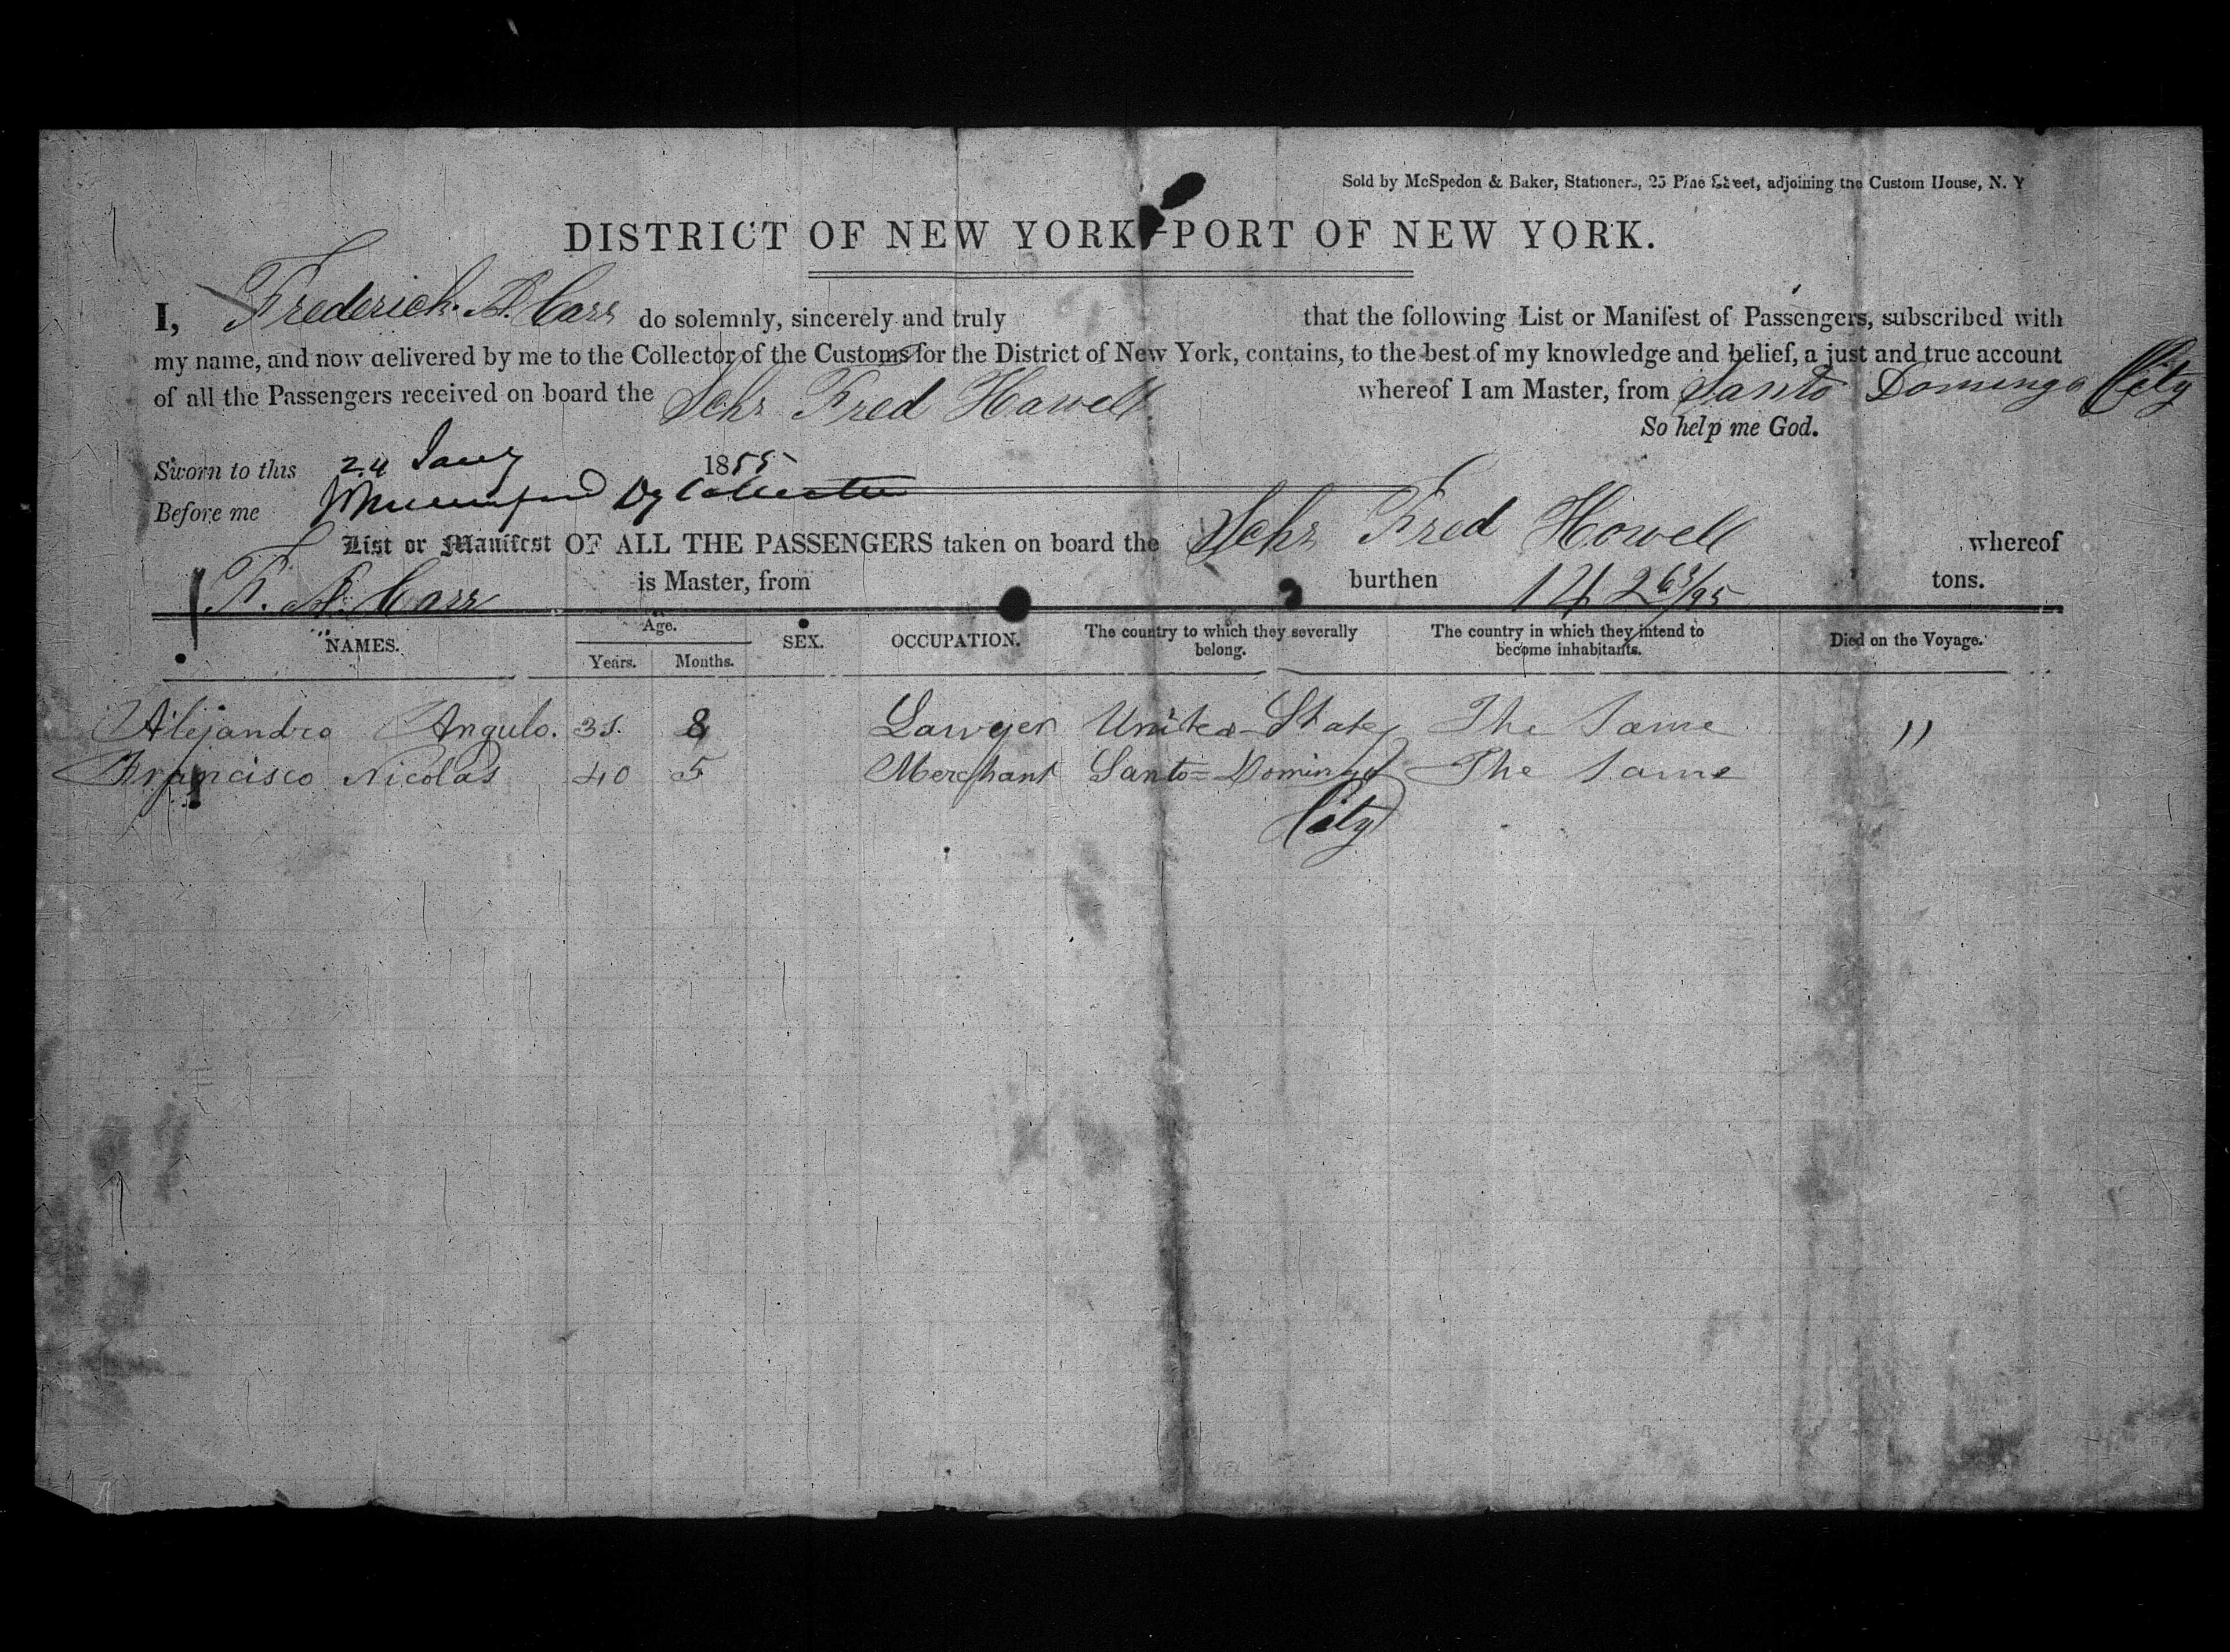 Sold by McSpedon & Baker, Stationers, 25 Pine Street, adjoining the Custom House, N. Y
DISTRICT OF NEW YORK-PORT OF NEW YORK.
I, Frederick. A. Carr do solemnly, sincerely and truly that the following List or Manifest of Passengers, subscribed with
my name, and now delivered by me to the Collector of the Customs for the District of New York, contains, to the best of my knowledge and belief, a just and true account
of all the Passengers received on board the Schr Fred Howell whereof I am Master, from Santo Domingo City
So help me God.
Sworn to this 24 Jany 1855
Before me Dy Collector
List or Manifest OF ALL THE PASSENGERS taken on board the Schr Fred Howell whereof
F. A. Carr is Master, from burthen 142 63/95 tons.
NAMES. Age. Years. Months. SEX. OCCUPATION. The country to which they severally belong. The country in which they intend to become inhabitants. Died on the Voyage.
Alejandro Angulo. 8 Lawyer United States The Same "
Francisco Nicolas 40 5 Merchant Santo=Domingo The Same
City